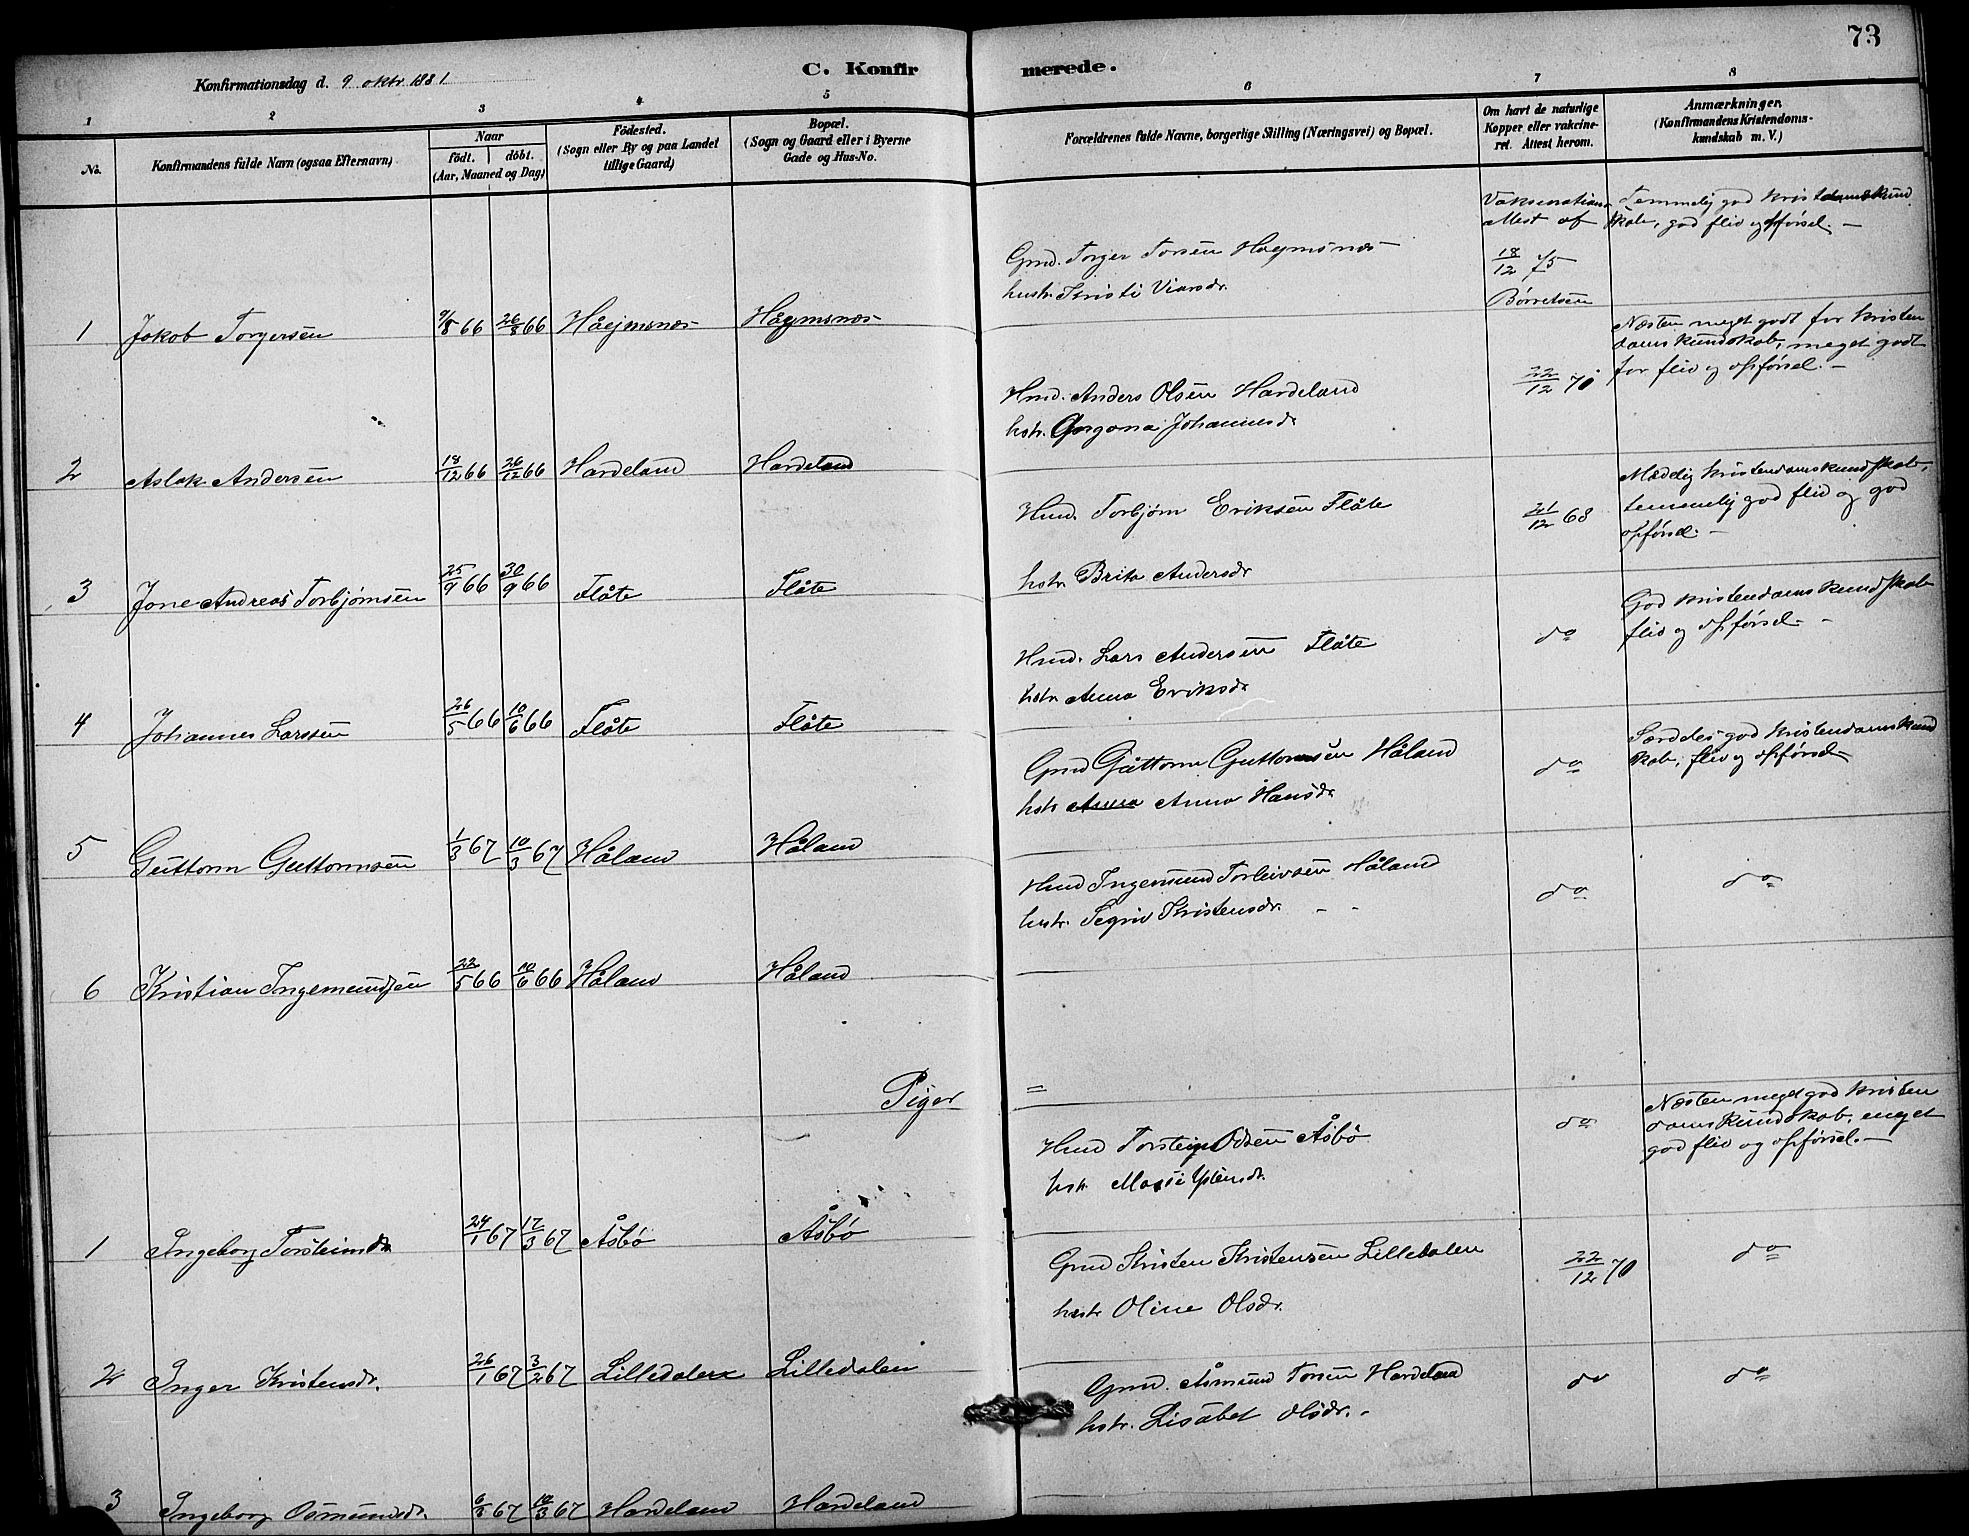 73
Konfirmationsdag d. 9 oktr 1881
C. Konfirmerede.
1 2 3 4 5 6 7 8
No.
Konfirmandens fulde Navn (ogsaa Efternavn)
Naar
født. døbt.
(Aar, Maaned og Dag)
Fødested.
(Sogn eller By og paa Landet
tillige Gaard)
Bopæl.
(Sogn og Gaard eller i Byerne
Gade og Hus-No.
Forældrenes fulde Navne, borgerlige Stilling (Næringsvei) og Bopæl.
Om havt de naturlige
Kopper, eller vakcine-
ret. Attest herom.
Anmærkninger.
(Konfirmandens Kristendoms-
kundskab m. V.)
1 Jakob Torgersen 9/8 66 26/8 66 Håejmsnæs Håejmsnæs
Gmd. Torger Torsen
hustr. Kristi
Vaksinations
attest af
18/12 75
Børretsen
Temmelig god Kristendomskund
skab, god flid og opførsel. —
2 Aslak Andersen 18/12 66 26/12 66 Hardeland Hardeland
Hmd. Anders Olsen Hardeland
hstr. Gorgona Johannesdr.
22/12 70
Næsten meget godt for Kristen
domskundskab, meget godt
for flid og opførsel. —
3 Jone Andreas Torbjørnsen 25/9 66 30/9 66 Flåte Flåte
Hmd. Torbjørn Eriksen Flåte
hstr. Brita Andersdr
21/12 68
Mådelig Kristendomskundskab,
temmelig god flid og god
opførsel. —
4 Johannes Larssen 26/5 66 10/6 66 Flåte Flåte
Hmd. Lars Andersen Flåte
hstr Anna Eriksdr
do
God Kristendomskundskab
flid og opførsel. —
5 Guttorm Guttormsen 1/3 67 10/3 67 Håland Håland
Gmd Guttorm Guttormsen Håland
hstr Anna Anna Hansdr
do
Særdeles god Kristendomskund
skab, flid og opførsel —
6 Kristian Ingemundsen 22/5 66 10/6 66 Håland Håland
Hmd Ingemund Torleivsen Håland
hustr. Segrid Kristensdr. - -
do
do
Piger
=
1 Ingeborg Torsteinsdr. 24/1 67 17/3 67 Åsbø Åsbø
Hmd Torstein Odsen Åsbø
hstr
do
Næsten meget god Kristen
domskundskab, meget
god flid og opførsel. —
2 Inger Kristensdr. 26/1 67 3/2 67 Lilledalen Lilledalen
Gmd Kristen Kristensen Lilledalen
hustr Oline Olsdr.
22/12 70
do
3 Ingeborg Osmundsdr. 6/3 67 10/3 67 Hardeland Hardeland
Gmd. Åsmund Torsen Hardeland
hstr. Lisabet Olsdr. -
do
do